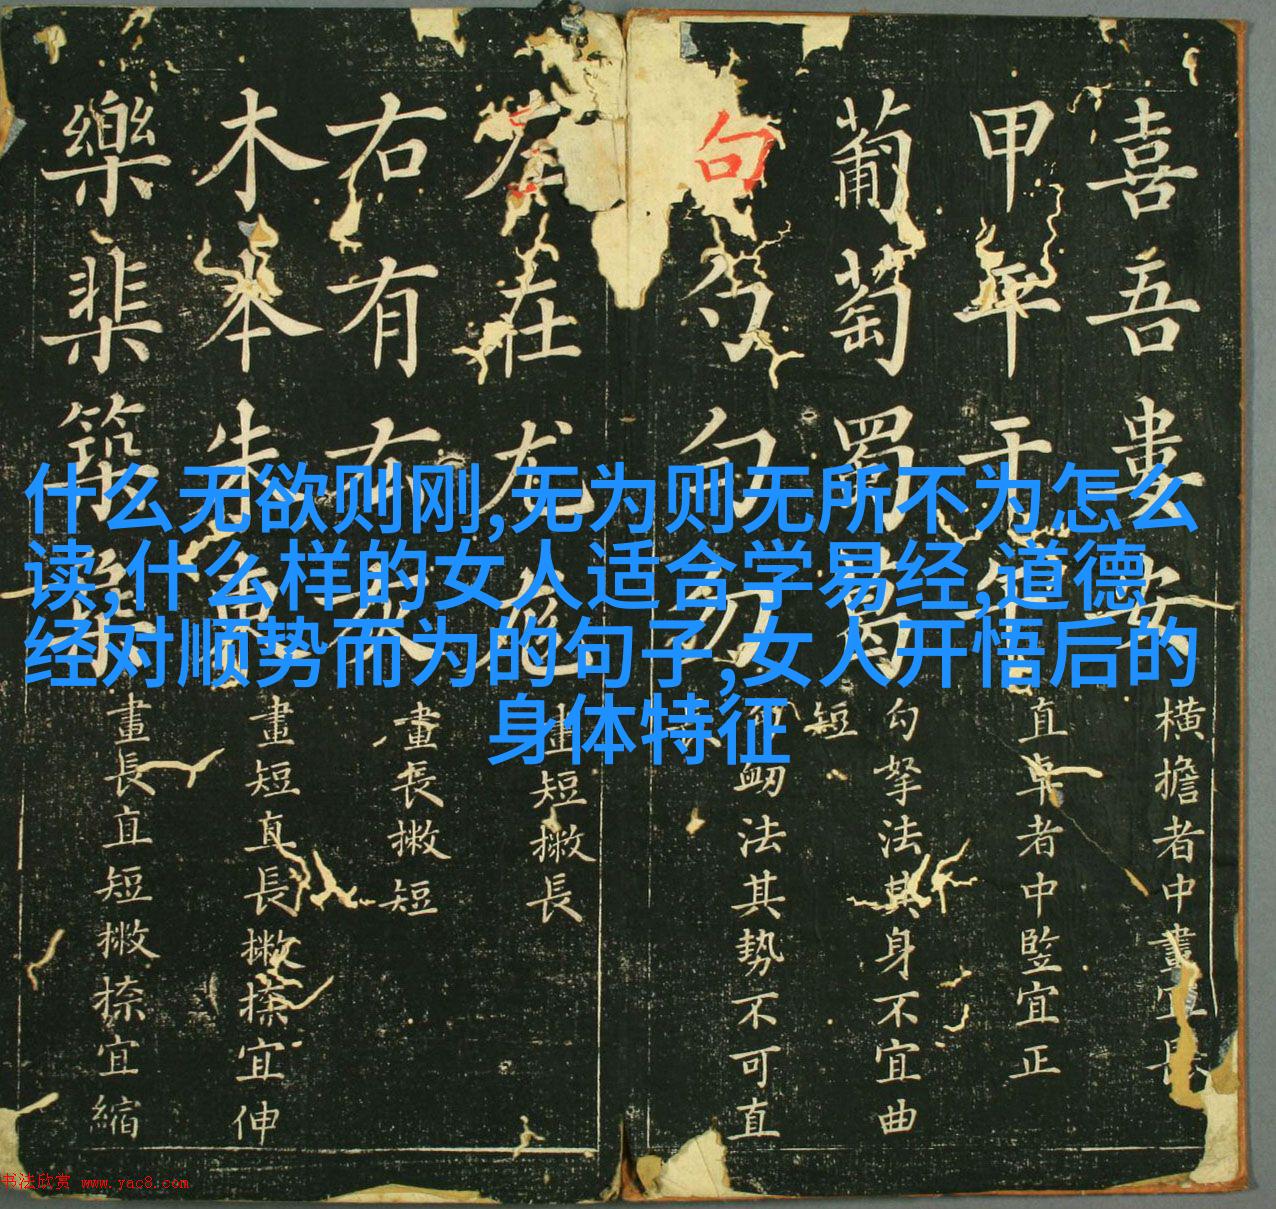 什么无欲则刚,无为则无所不为怎么
读,什么样的女人适合学易经,道德
经对顺势而为的句子,女人开悟后的
身体特征
喜吾婁安
横擔者中畫宜
甲平干
直者中監宜正
葡萄蜀葛
勾拏法其身不宜曲
短
句勺勾勿
法其勢不可直
左在尤尨
畫短撇長
右有
畫長撇短
木本朱
畫短直長撇捺宜伸
樂棐築
畫長直短撇捺宜縮
书法欣赏 www.yac8.com